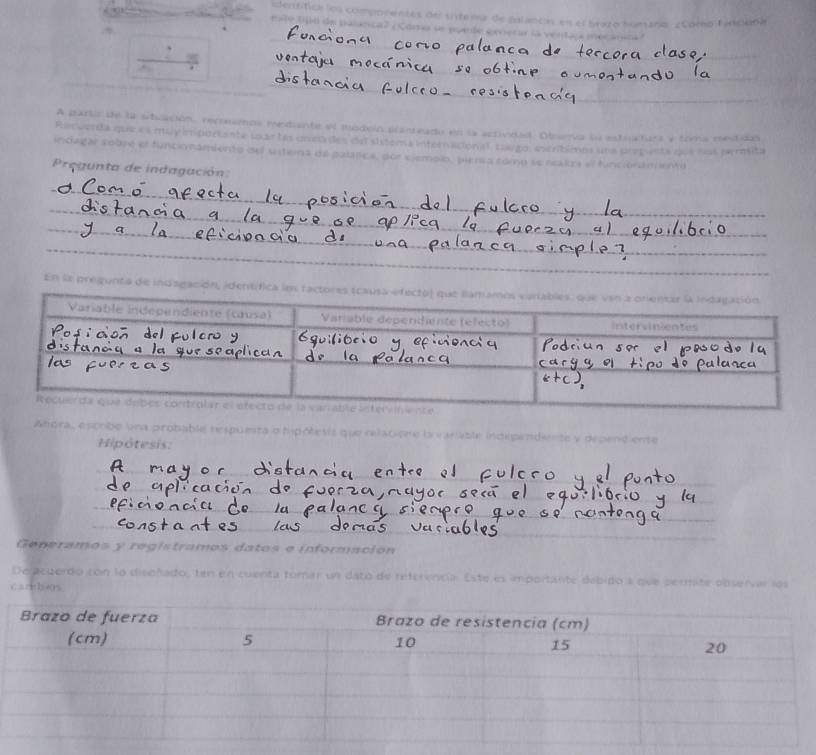 Identifica los componentes del sistema de palancas en el brazo humano. ¿Cómo funciona
este tipo de palanca? ¿Cómo se puede generar la ventaja mecánica?
Funciona como palanca de tercera clase;
ventaja mecánica se obtine aumentando la
distancia fulcro- resistencia
A partir de la situación, recreamos mediante el modelo planteado en la actividad. Observa su estructura y toma medidas.
Recuerda que es muy importante usar las unidades del sistema internacional. Luego, escribimos una pregunta que nos permita
indagar sobre el funcionamiento del sistema de palanca, por ejemplo, piensa cómo se realiza el funcionamiento
Pregunta de indagación:
¿Comó afecta la posición del fulcro y la
distancia a la que se aplica la fuerza al equilibrio
y a la eficiencia de una palanca simple?
En la pregunta de indagación, identifica los factores (causa-efecto) que llamamos variables, que van a orientar la indagación
Variable independiente (causa) Variable dependiente (efecto) Intervinientes
Posicion del fulcro y Equilibrio y eficiencia Podrian ser el peso de la
distancia a la que se aplican de la palanca carga, el tipo de palanca
las fuerzas etc),
Recuerda que debes controlar el efecto de la variable interviniente.
Ahora, escribe una probable respuesta o hipótesis que relacione la variable independiente y dependiente
Hipótesis:
A mayor distancia entre el fulcro y el punto
de aplicación de fuerza, mayor será el equilibrio y la
eficiencia de la palanca siempre que se mantenga
constantes las demás variables
Generamos y registramos datos e información
De acuerdo con lo diseñado, ten en cuenta tomar un dato de referencia. Este es importante debido a que permite observar los
cambios.
Brazo de fuerza Brazo de resistencia (cm)
(cm) 5 10 15 20